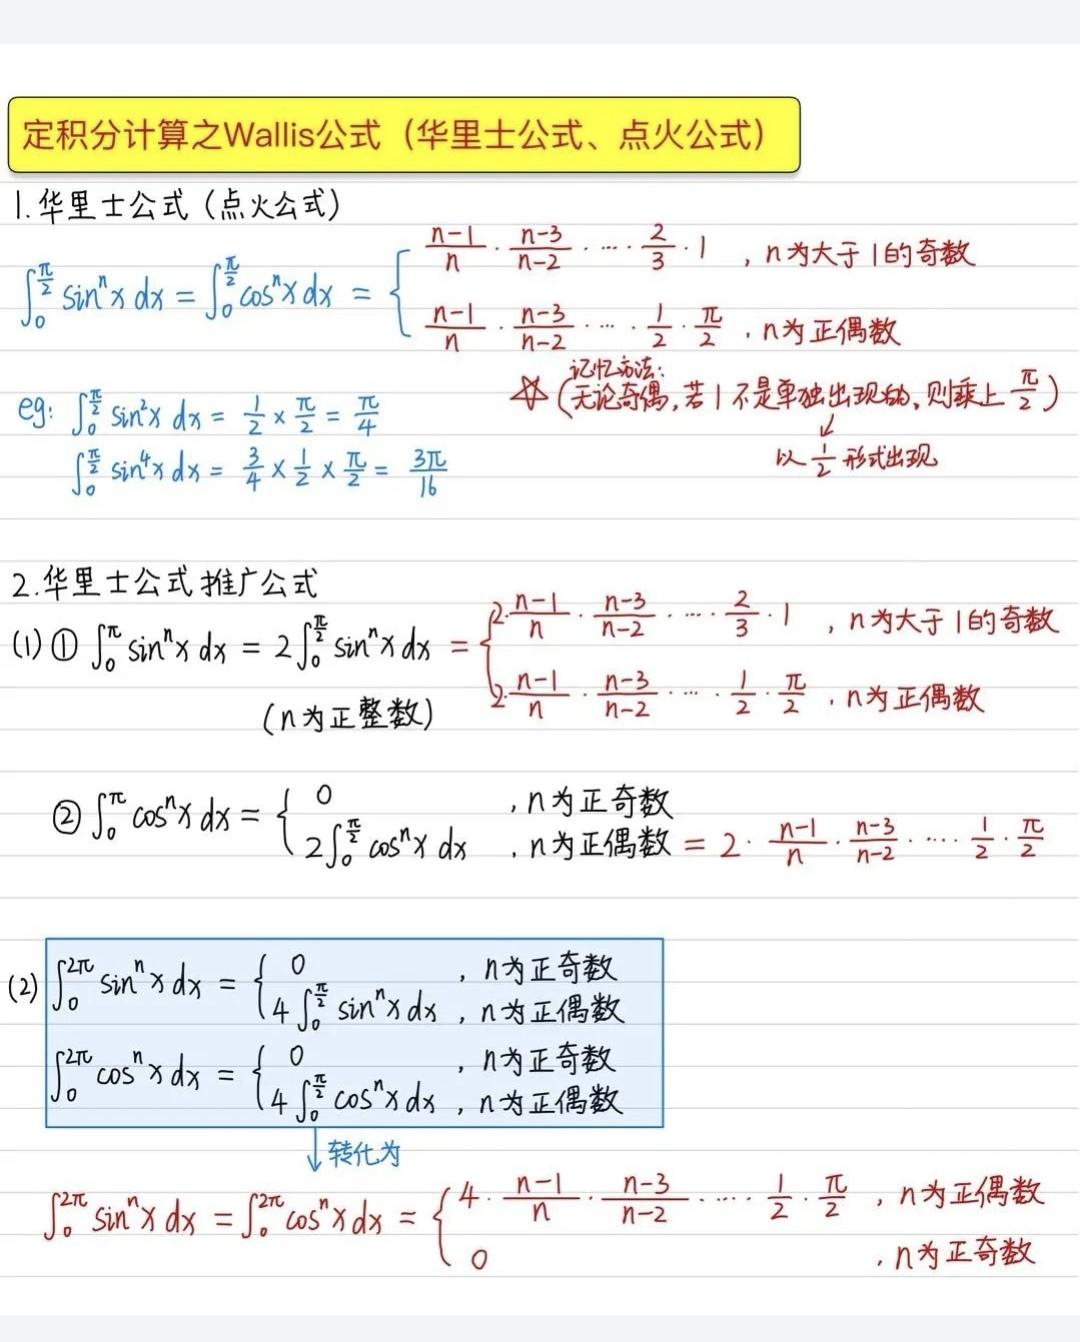 定积分计算之Wallis公式（华里士公式、点火公式）
1.华里士公式（点火公式）
∫₀^{π/2} sinⁿx dx = ∫₀^{π/2} cosⁿx dx = { (n-1)/n · (n-3)/(n-2) · … · 2/3 · 1 ，n为大于1的奇数
(n-1)/n · (n-3)/(n-2) · … · 1/2 · π/2 ，n为正偶数
记忆方法:
☆（无论奇偶,若1不是单独出现的,则乘上 π/2）
↓
以 1/2 形式出现
eg: ∫₀^{π/2} sin²x dx = 1/2 × π/2 = π/4
∫₀^{π/2} sin⁴x dx = 3/4 × 1/2 × π/2 = 3π/16
2.华里士公式推广公式
(1) ① ∫₀^π sinⁿx dx = 2∫₀^{π/2} sinⁿx dx = { 2·(n-1)/n · (n-3)/(n-2) · … · 2/3 · 1 ，n为大于1的奇数
2·(n-1)/n · (n-3)/(n-2) · … · 1/2 · π/2 ，n为正偶数
（n为正整数）
② ∫₀^π cosⁿx dx = { 0 ，n为正奇数
2∫₀^{π/2} cosⁿx dx ，n为正偶数 = 2 · (n-1)/n · (n-3)/(n-2) · … · 1/2 · π/2
(2) ∫₀^{2π} sinⁿx dx = { 0 ，n为正奇数
4∫₀^{π/2} sinⁿx dx ，n为正偶数
∫₀^{2π} cosⁿx dx = { 0 ，n为正奇数
4∫₀^{π/2} cosⁿx dx ，n为正偶数
↓转化为
∫₀^{2π} sinⁿx dx = ∫₀^{2π} cosⁿx dx = { 4 · (n-1)/n · (n-3)/(n-2) · … · 1/2 · π/2 ，n为正偶数
0 ，n为正奇数